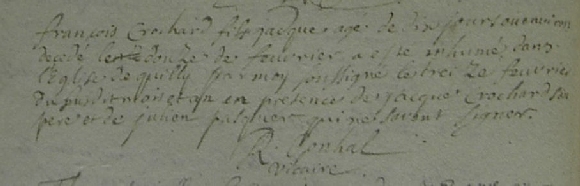 françois Crochard fils jacque agé de dix jours ou environ
decedé le douze de feuvrier a esté inhumé dans
l'Eglise de quilly par moy soussigné les treize feuvrier
du susdit mois et an en presence de jacque Crochard son
pere et de julien pasquer qui ne savent signer.
R. Gonhal
vicaire